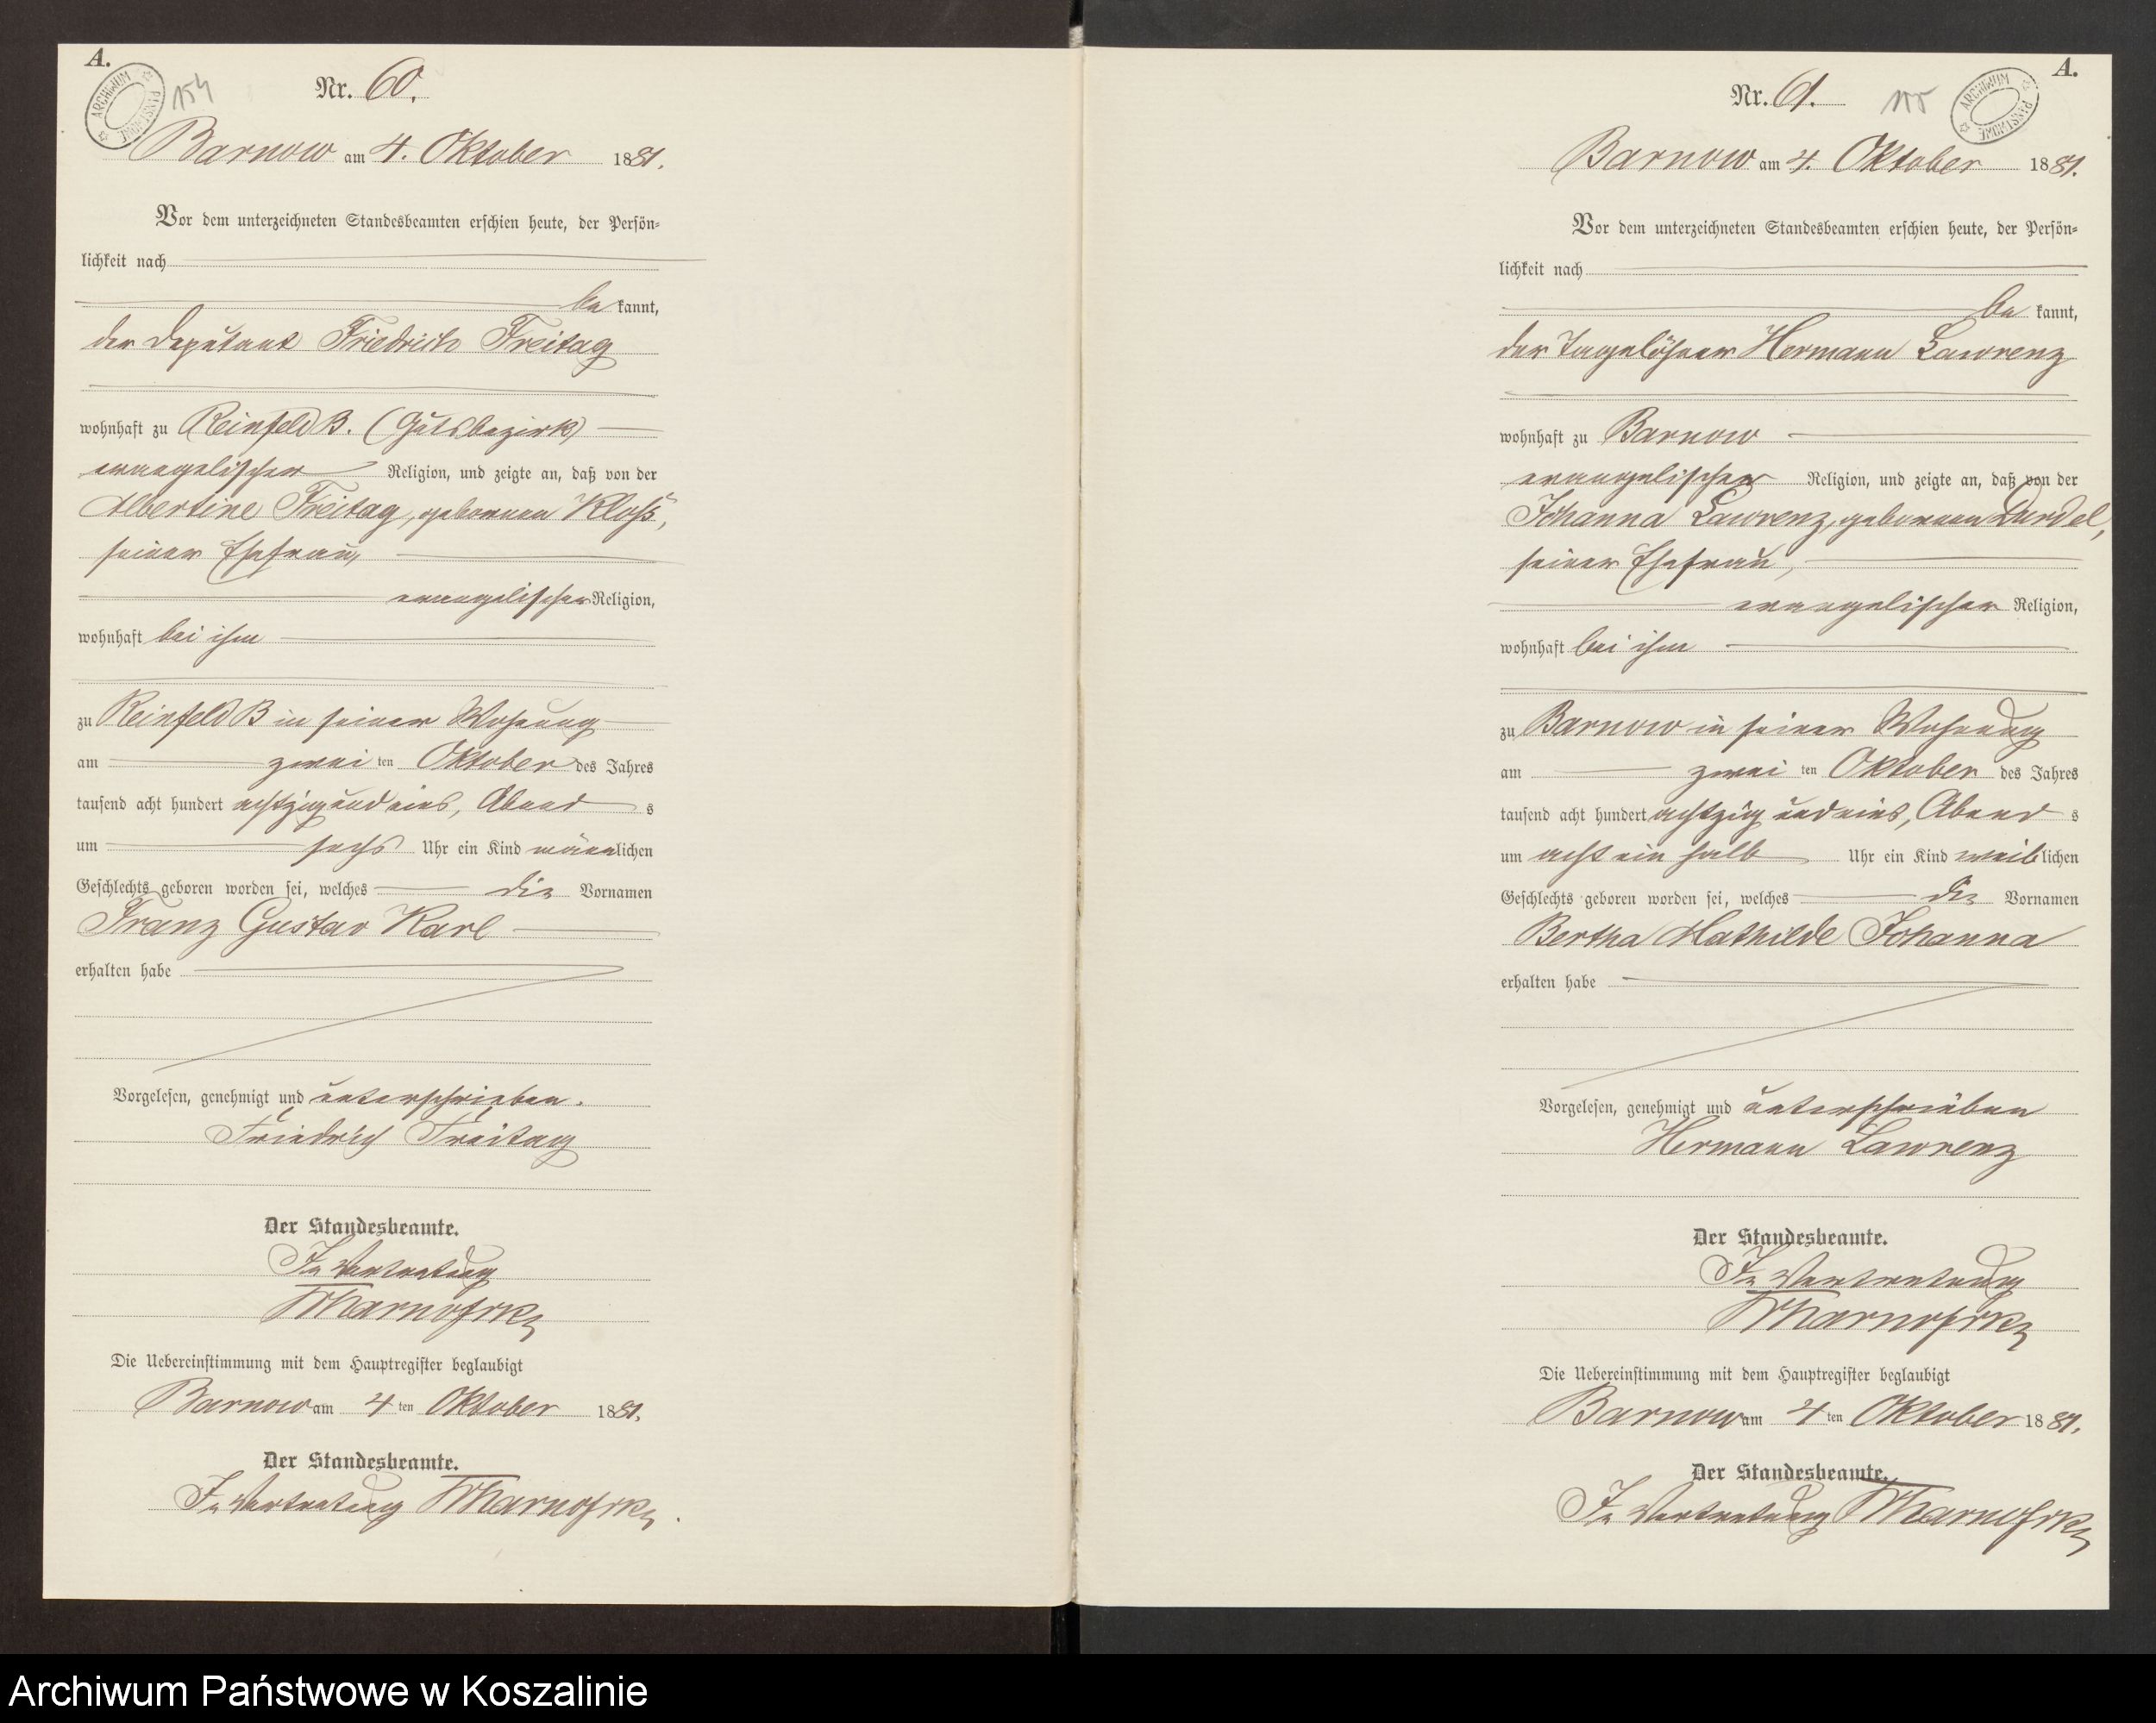 A.
ARCHIWUM PAŃSTWOWE
154
Nr. 60.
Barnow am 4. Oktober 1881.
Vor dem unterzeichneten Standesbeamten erschien heute, der Persön-
lichkeit nach
be kannt,
der Deputant Friedrich Freitag
wohnhaft zu Reinfeld B. (Gutsbezirk)
evangelischer Religion, und zeigte an, daß von der
Albertine Freitag, geborenen Kloß,
seiner Ehefrau,
evangelischer Religion,
wohnhaft bei ihm
zu Reinfeld B in seiner Wohnung
am zwei ten Oktober des Jahres
tausend acht hundert achtzig und eins, Abend s
um sechs Uhr ein Kind männlichen
Geschlechts geboren worden sei, welches die Vornamen
Franz Gustav Karl
erhalten habe
Vorgelesen, genehmigt und unterschrieben.
Friedrich Freitag
Der Standesbeamte.
In Vertretung
Die Uebereinstimmung mit dem Hauptregister beglaubigt
Barnow am 4 ten Oktober 1881.
Der Standesbeamte.
In Vertretung
A.
ARCHIWUM PAŃSTWOWE
155
Nr. 61.
Barnow am 4. Oktober 1881.
Vor dem unterzeichneten Standesbeamten erschien heute, der Persön-
lichkeit nach
be kannt,
der Tagelöhner Hermann Lawrenz
wohnhaft zu Barnow
evangelischer Religion, und zeigte an, daß von der
Johanna Lawrenz, geborenen Durdel,
seiner Ehefrau,
evangelischer Religion,
wohnhaft bei ihm
zu Barnow in seiner Wohnung
am zwei ten Oktober des Jahres
tausend acht hundert achtzig und eins, Abend s
um acht ein halb Uhr ein Kind weiblichen
Geschlechts geboren worden sei, welches die Vornamen
Bertha Mathilde Johanna
erhalten habe
Vorgelesen, genehmigt und unterschrieben
Hermann Lawrenz
Der Standesbeamte.
In Vertretung
Die Uebereinstimmung mit dem Hauptregister beglaubigt
Barnow am 4 ten Oktober 1881.
Der Standesbeamte.
In Vertretung
Archiwum Państwowe w Koszalinie